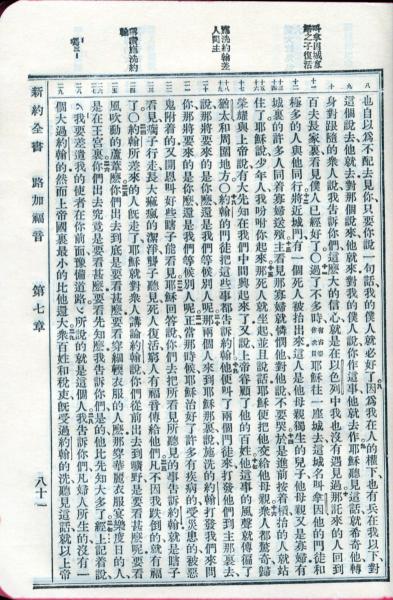 叫拿因城寡
婦之子復活
施洗約翰差
人問主
稱讚施洗約
翰
瑪三1
也自以爲不配去見你只要你說一句話我的僕人就必好了因爲我在人的權下也有兵在我以下對
這個說去他就去對那個說來他就來對我的僕人說你作這事他就去作耶穌聽見這話就希奇他轉
身對跟隨的衆人說我告訴你們這麼大的信心就是在以色列中我也沒有遇見過那託來的人回到
百夫長家裏看見僕人已經好了〇過了不多時有古卷作次日耶穌往一座城去這城名叫拿因他的門徒和
極多的人與他同行將近城門有一個死人被抬出來這人是他母親獨生的兒子他母親又是寡婦有
城裏的許多人同着寡婦送殯主看見那寡婦就憐憫他對他說不要哭於是進前按着槓抬的人就站
住了耶穌說少年人我吩咐你起來那死人就坐起並且說話耶穌便把他交給他母親衆人都驚奇歸
榮耀與上帝說有大先知在我們中間興起來了又說上帝眷顧了他的百姓他這事的風聲就傳徧了
猶太和周圍地方〇約翰的門徒把這些事都告訴約翰他便叫了兩個門徒來打發他們到主那裏去
說那將要來的是你麼還是我們等候別人呢那兩個人來到耶穌那裏說施洗的約翰打發我們來問
你那將要來的是你麼還是我們等候別人呢正當那時候耶穌治好了許多有疾病的受災患的被惡
鬼附着的又開恩叫好些瞎子能看見耶穌回答說你們去把所看見所聽見的事告訴約翰就是瞎子
看見瘸子行走長大痲瘋的潔淨聾子聽見死人復活窮人有福音傳給他們凡不因我跌倒的就有福
了〇約翰所差來的人既走了耶穌就對衆人講論約翰說你們從前出去到曠野是要看甚麼呢要看
風吹動的蘆葦麼你們出去到底是要看甚麼要看穿細輭衣服的人麼那穿華麗衣服宴樂度日的人
是在王宮裏你們出去究竟是要看甚麼要看先知麼我告訴你們是的他比先知大多了經上記着說
我要差遣我的使者在你前面豫備道路所說的就是這個人我告訴你們凡婦人所生的沒有一
個大過約翰的然而上帝國裏最小的比他還大衆百姓和稅吏既受過約翰的洗聽見這話就以上帝
新約全書 路加福音 第七章 八十一